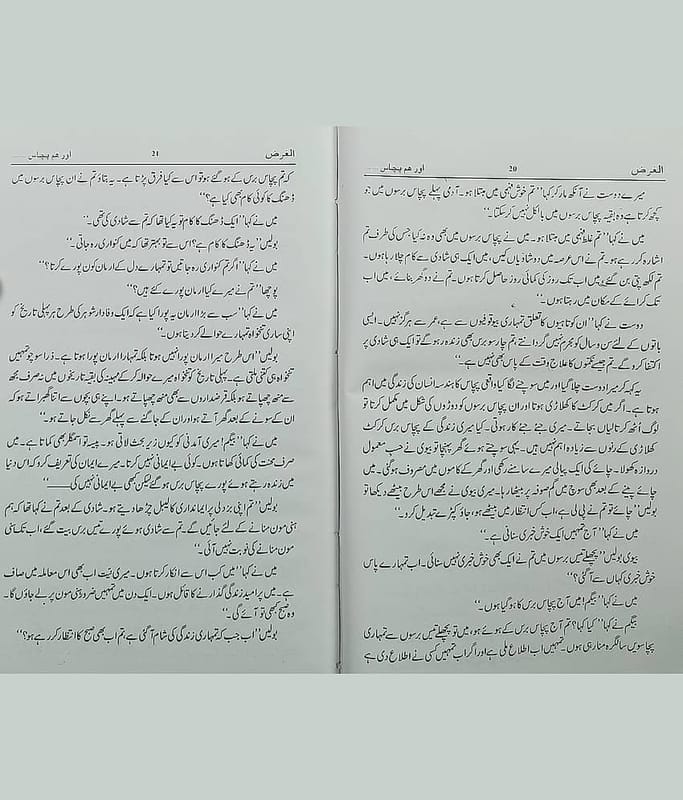 الغرض 20 اور ہم پچاس ......
میرے دوست نے آنکھ مار کر کہا ''تم خوش فہمی میں مبتلا ہو۔ آدمی پہلے پچاس برسوں میں جو
کچھ کرتا ہے وہ بقیہ پچاس برسوں میں بالکل نہیں کر سکتا۔''
میں نے کہا ''تم غلط فہمی میں مبتلا ہو۔ میں نے پچاس برسوں میں بھی وہ نہ کیا جس کی طرف تم
اشارہ کر رہے ہو۔ تم نے اس عرصہ میں دو شادیاں کیں، میں ایک ہی شادی سے کام چلا رہا ہوں۔
تم لکھ پتی بن گئے پر میں اب تک روز کی کمائی روز حاصل کرتا ہوں۔ تم نے دو گھر بنائے، میں اب
تک کرائے کے مکان میں رہتا ہوں۔''
دوست نے کہا ''ان کوتاہیوں کا تعلق تمہاری بیوقوفیوں سے ہے، عمر سے ہرگز نہیں۔ ایسی
باتوں کے لئے سن و سال کو مجرم نہیں گردانتے ہم چار سو برس بھی زندہ رہو گے تو ایک ہی شادی پر
اکتفا کرو گے۔ تم جیسے نکموں کا علاج وقت کے پاس بھی نہیں ہے۔''
یہ کہہ کر میرا دوست چلا گیا اور میں سوچنے لگا کیا واقعی پچاس کا ہندسہ انسان کی زندگی میں اہم
ہوتا ہے۔ اگر میں کرکٹ کا کھلاڑی ہوتا اور ان پچاس برسوں کو دوڑوں کی شکل میں مکمل کرتا تو
لوگ اُٹھ کر تالیاں بجاتے۔ میری جئے جئے کار ہوتی۔ کیا میری زندگی کے پچاس برس کرکٹ
کھلاڑی کے رنوں سے زیادہ اہم نہیں ہیں۔ یہی سوچتے ہوئے گھر پہنچا تو بیوی نے حسب معمول
دروازہ کھولا۔ چائے کی ایک پیالی میرے سامنے رکھی اور گھر کے کاموں میں مصروف ہو گئی۔ میں
چائے پینے کے بعد بھی سوچ میں گم صوفہ پر بیٹھا رہا۔ میری بیوی نے مجھے اس طرح بیٹھے دیکھا تو
بولیں ''چائے تو تم نے پی لی ہے، اب کس انتظار میں بیٹھے ہو، جاؤ کپڑے تبدیل کر دو۔''
میں نے کہا ''آج تمہیں ایک خوش خبری سنانی ہے۔''
بیوی بولیں ''پچھلے تیس برسوں میں تم نے ایک بھی خوش خبری نہیں سنائی۔ اب تمہارے پاس
خوش خبری کہاں سے آ گئی؟''
میں نے کہا ''بیگم! میں آج پچاس برس کا ہو گیا ہوں۔''
بیگم نے کہا ''کیا کہا؟ تم آج پچاس برس کے ہوئے ہو، میں تو پچھلے تیس برسوں سے تمہاری
پچاسویں سالگرہ منا رہی ہوں۔ تمہیں اب اطلاع ملی ہے اور اگر اب تمہیں کسی نے اطلاع دی ہے
الغرض 21 اور ہم پچاس ......
کہ تم پچاس برس کے ہو گئے ہو تو اس سے کیا فرق پڑتا ہے۔ یہ بتاؤ تم نے ان پچاس برسوں میں
ڈھنگ کا کوئی کام بھی کیا ہے؟''
میں نے کہا ''ایک ڈھنگ کا کام تو یہ کیا تھا کہ تم سے شادی کی تھی۔''
بولیں ''یہ ڈھنگ کا کام ہے؟ اس سے تو بہتر تھا کہ میں کنواری رہ جاتی۔''
میں نے کہا ''اگر تم کنواری رہ جاتیں تو تمہارے دل کے ارمان کون پورے کرتا؟''
پوچھا ''تم نے میرے کیا ارمان پورے کئے ہیں؟''
میں نے کہا ''سب سے بڑا ارمان یہ پورا کیا ہے کہ ایک وفادار شوہر کی طرح ہر پہلی تاریخ کو
اپنی ساری تنخواہ تمہارے حوالے کر دیتا ہوں۔''
بولیں ''اس طرح میرا ارمان پورا نہیں ہوتا بلکہ تمہارا ارمان پورا ہوتا ہے۔ ذرا سوچو تمہیں
تنخواہ ہی کتنی ملتی ہے۔ پہلی تاریخ کو تنخواہ میرے حوالہ کر کے مہینہ کی بقیہ تاریخوں میں نہ صرف مجھ
سے منھ چھپاتے ہو بلکہ قرضداروں سے بھی منھ چھپاتے ہو۔ اپنے ہی بچوں سے اتنا گھبراتے ہو کہ
ان کے سونے کے بعد گھر آتے ہو اور ان کے جاگنے سے پہلے گھر سے نکل جاتے ہو۔''
میں نے کہا ''بیگم! میری آمدنی کو کیوں زیر بحث لاتی ہو۔ پیسہ تو اسمگلر بھی کماتا ہے۔ میں
صرف محنت کی کمائی کھاتا ہوں۔ کوئی بے ایمانی نہیں کرتا۔ میرے ایمانی کی تعریف کرو کہ اس دنیا
میں زندہ رہتے ہوئے پورے پچاس برس ہو گئے لیکن کبھی بے ایمانی نہیں کی ــــــ''
بولیں ''تم اپنی بزدلی پر ایمانداری کا لیبل چڑھا دیتے ہو۔ شادی کے بعد تم نے کہا تھا کہ ہم
ہنی مون منانے کے لئے جائیں گے۔ تم سے شادی ہوئے پورے تیس برس بیت گئے، اب تک ہنی
مون منانے کی نوبت نہیں آئی۔''
میں نے کہا ''میں کب اس سے انکار کرتا ہوں۔ میری نیت اب بھی اس معاملہ میں صاف
ہے۔ میں پرامید زندگی گذارنے کا قائل ہوں۔ ایک دن میں تمہیں ضرور ہنی مون پر لے جاؤں گا۔
وہ صبح کبھی تو آئے گی۔''
بولیں ''اب جب کہ تمہاری زندگی کی شام آ گئی ہے، تم اب بھی صبح کا انتظار کر رہے ہو؟''